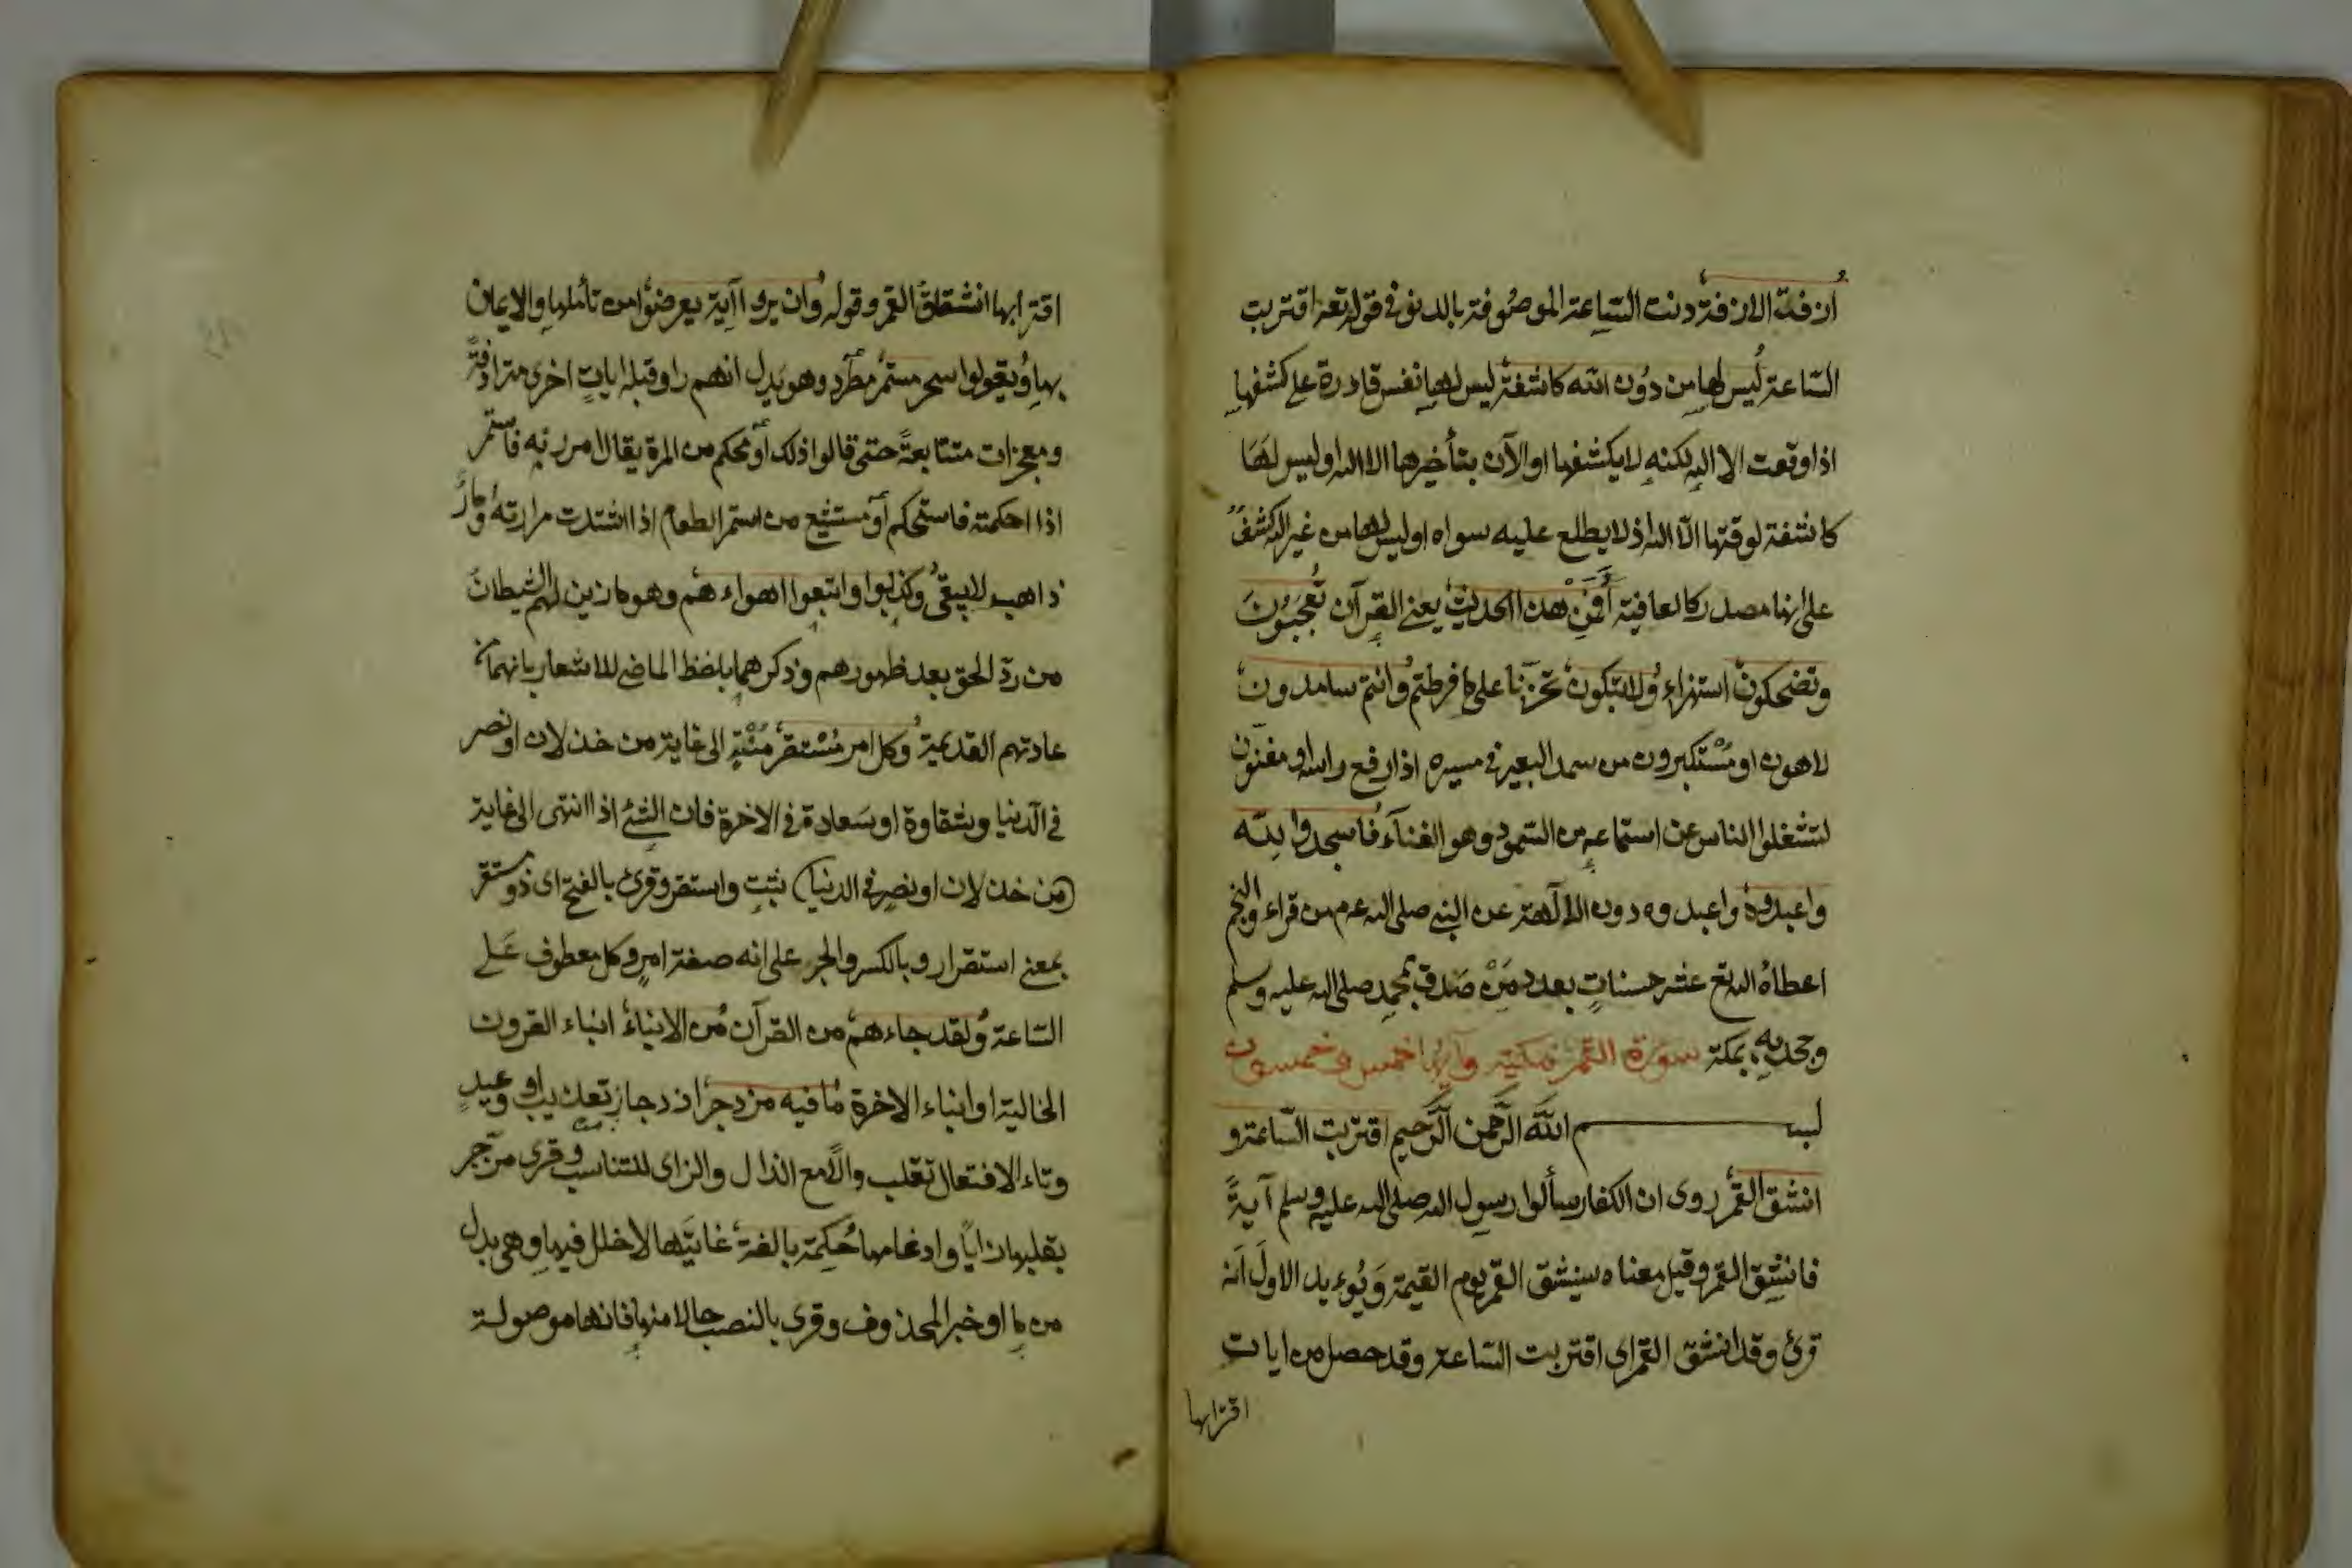 ازفة الازفة دنت الساعة الموصوفة بالدنو في قوله تعه اقتربت
الساعة ليس لها من دون الله كاشفة ليس لها نفس قادرة على كشفها
اذا وقعت الا الله لكنه لا يكشفها او الآن بتأخيرها الا الله او ليس لها
كاشفة لوقتها الا الله اذ لا يطلع عليه سواه او ليس لها من غير الله كشف
على انها مصدر كالعافية أفمن هذا الحديث يعني القرآن تعجبون
وتضحكون استهزاء ولا تبكون تحزنا على ما فرطتم وانتم سامدون
لاهون او مستكبرون من سمد البعير في مسيره اذا رفع راسه او مغنون
لتشغلوا الناس عن استماعه من السمود وهو الغناء فاسجدوا لله
واعبدوه واعبدوه دون الالهة عن النبي صلى الله عم من قراء والنجم
اعطاه الله تع عشر حسنات بعدد من صدق بمحمد صلى الله عليه وسلم
وجحد به بمكة سورة القمر مكية وآيها خمس وخمسون
بسم الله الرحمن الرحيم اقتربت الساعة و
انشق القمر روى ان الكفار سألوا رسول الله صلى الله عليه وسلم آية
فانشق القمر وقيل معناه سينشق القمر يوم القيمة ويؤيد الاول انه
قرئ وقد انشق القمر اى اقتربت الساعة وقد حصل من ايات
اقترابها
اقترابها انشقاق القمر وقوله وان يروا آية يعرضوا من تأملها والايمان
بها ويقولوا سحر مستمر مطرد وهو يدل انهم راوا قبله ايات اخرى مترادفة
ومعجزات متتابعة حتى قالوا ذلك أو محكم من المرة يقال امررته فاستمر
اذا احكمته فاستحكم أو مستشبع من استمر الطعام اذا اشتدت مرارته او مار
ذاهب لا يبقى وكذبوا واتبعوا اهواءهم وهو ما زين لهم الشيطان
من رد الحق بعد ظهورهم وذكرهما بلفظ الماضى للاشعار بانهما من
عادتهم القديمة وكل امر مستقر منته الى غاية من خذلان او نصر
في الدنيا وشقاوة او سعادة في الاخرة فان الشئ اذا انتهى الى غاية
(من خذلان او نصر في الدنيا) ثبت واستقر وقرئ بالفتح اى ذو مستقر
بمعنى استقرار وبالكسر والجر على انه صفة امر وكل معطوف على
الساعة ولقد جاءهم من القرآن من الانباء انباء القرون
الخالية او انباء الاخرة ما فيه مزدجر ازدجار تعذيب او وعيد
وتاء الافتعال تقلب دالا مع الذال والزاى للتناسب وقرى مزجر
بقلبها زايا وادغامها حكمة بالغة غايتها لا خلل فيها وهي بدل
من ما او خبر المحذوف وقرى بالنصب حالا منها فانها موصولة